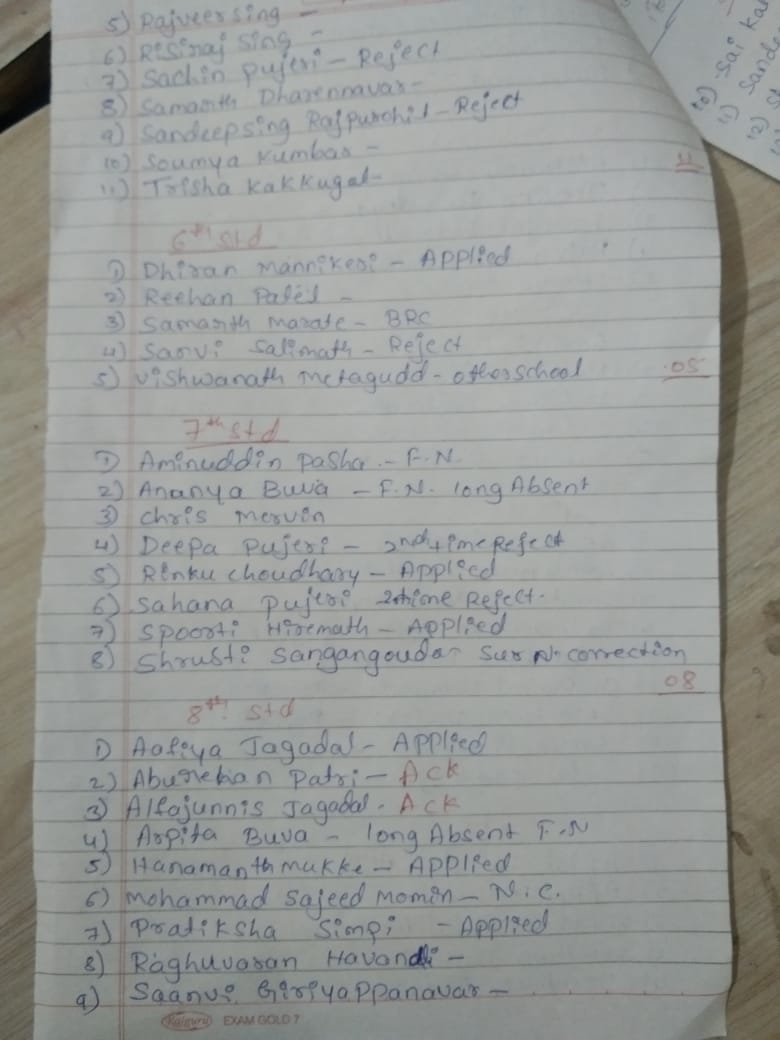 5) Rajveersing -
6) Risiraj Sing -
7) Sachin Pujeri - Reject
8) Samarth Dharennavar -
9) Sandeepsing Rajpurohit - Reject
10) Soumya Kumbar -
11) Trisha Kakkugal -
11
6th Std
1) Dhiran Mannikeri - Applied
2) Reehan Patel -
3) Samarth Marate - BRC
4) Sanvi Salimath - Reject
5) Vishwanath Metagudd - other School
05
7th Std
1) Aminuddin Pasha. - F.N.
2) Ananya Buva - F.N. long Absent
3) Chris Mervin
4) Deepa Pujeri - 2nd time Reject
5) Rinku Choudhary - Applied
6) Sahana Pujeri 2time Reject.
7) Spoorti Hiremath - Applied
8) Shrusti Sangangoudar Sur N. correction
08
8th Std
1) Aafiya Jagadal - Applied
2) Aburehan Patri - Ack
3) Alfajunnis Jagadal - Ack
4) Arpita Buva - long Absent F.N
5) Hanamanth Mukke - Applied
6) Mohammad Sajeed Momin - N.C.
7) Pratiksha Simpi - Applied
8) Raghuvaran Havandi -
9) Saanvi Giriyappanavar -
Rajguru EXAM GOLD 7
10) Sai
11)
12)